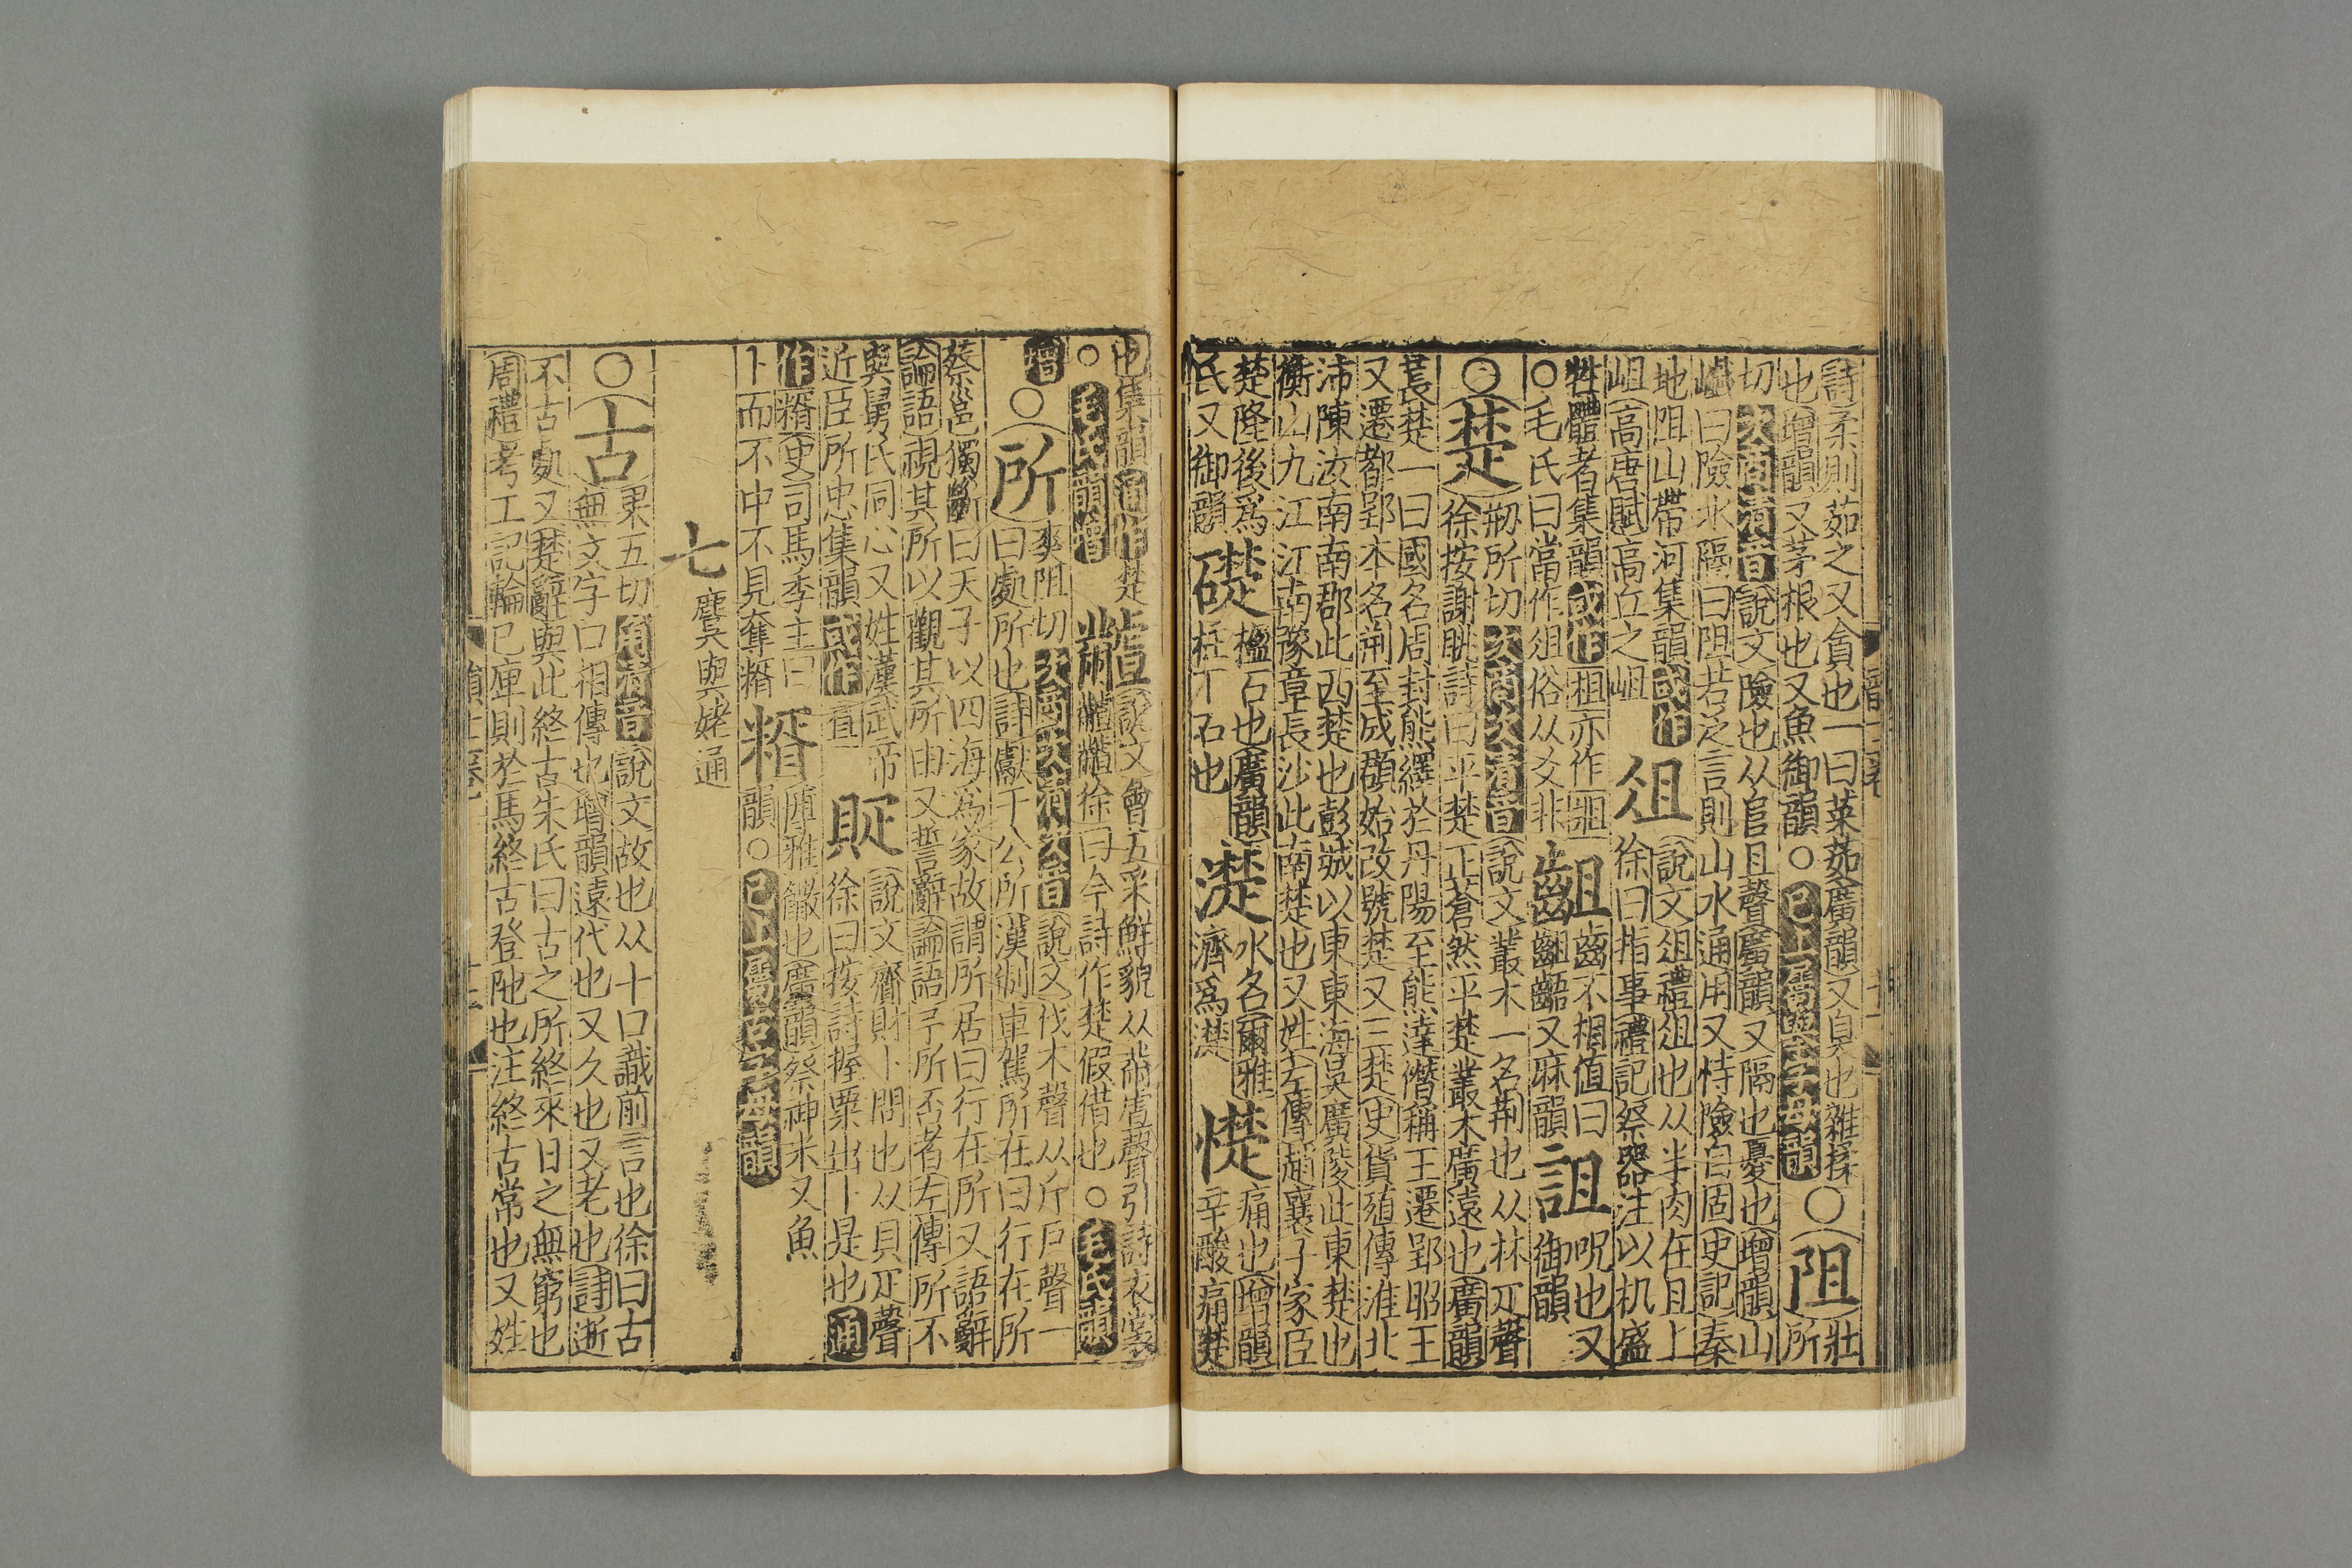 詩柔則茹之又貪也一曰菜茹廣韻又臭也雜揉〇阻壯
也增韻又茅根也又魚御韻〇已上屬字母韻所
切次商清音說文險也从𨸏且聲廣韻又隔也憂也增韻山
巇曰險水隔曰阻若泛言則山水通用又恃險自固史記秦
地阻山帶河集韻或作俎說文俎禮俎也从半肉在且上
岨高唐賦高丘之岨徐曰指事禮記祭器注以机盛
牲體者集韻或作柤亦作齟齒不相值曰詛呪也又
〇毛氏曰當作俎俗从爻非齟齬又麻韻御韻
〇楚剏所切次商次清音說文叢木一名荆也从林疋聲
徐按謝眺詩曰平楚正蒼然平楚叢木廣遠也廣韻
萇楚一曰國名周封熊繹於丹陽至熊達僭稱王遷郢昭王
又遷都郢本名荆至成頵始改號楚又三楚史貨殖傳淮北
沛陳汝南南郡此西楚也彭城以東東海吳廣陵此東楚也
衡山九江江南豫章長沙此南楚也又姓左傳趙襄子家臣
楚隆後爲礎楹石也廣韻濋水名爾雅憷痛也增韻
氏又御韻柱下石也濟爲濋辛酸痛楚
也集韻通作楚𪓐說文會五采鮮貌从黹虘聲引詩衣裳
〇毛氏韻增徐曰今詩作楚假借也〇毛氏韻
增〇所爽阻切次商次清次音說文伐木聲从斤戶聲一
曰處所也詩獻于公所漢制車駕所在曰行在所
蔡邕獨斷曰天子以四海爲家故謂所居曰行在所又語辭
論語視其所以觀其所由又誓辭論語予所否者左傳所不
與舅氏同心又姓漢武帝𧵍說文齎財卜問也从貝疋聲
近臣所忠集韻或作徐曰按詩握粟出卜是也通
作糈史司馬季主曰糈廣雅饊也廣韻祭神米又魚
卜而不中不見奪糈韻〇已上屬字母韻
七麌與姥通
〇古果五切角清音說文故也从十口識前言也徐曰古
無文字口相傳也增韻遠代也又久也又老也詩逝
不古處又楚辭與此終古朱氏曰古之所終來日之無窮也
周禮考工記輪已庳則於馬終古登阤也注終古常也又姓